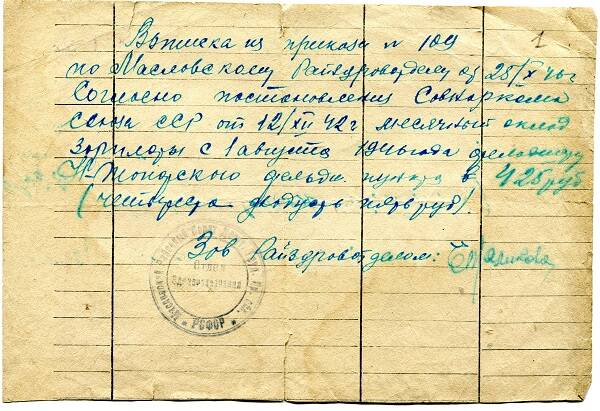 1
Выписка из приказа № 109
по Масловскому Райздравотделу от 25/X 46 г
Согласно постановления Совнаркома
союза ССР от 12/XII 42 г месячный оклад
зарплаты с 1 августа 1946 года
пункта в 425 руб
(четыреста двадцать пять руб).
Зав Райздравотделом:
Отдел
Здравоохранения
РСФСР